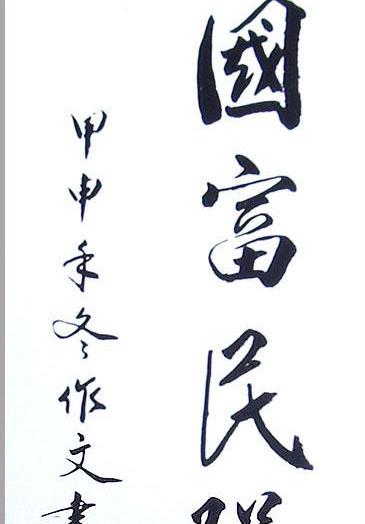 國富民
甲申年冬作文書